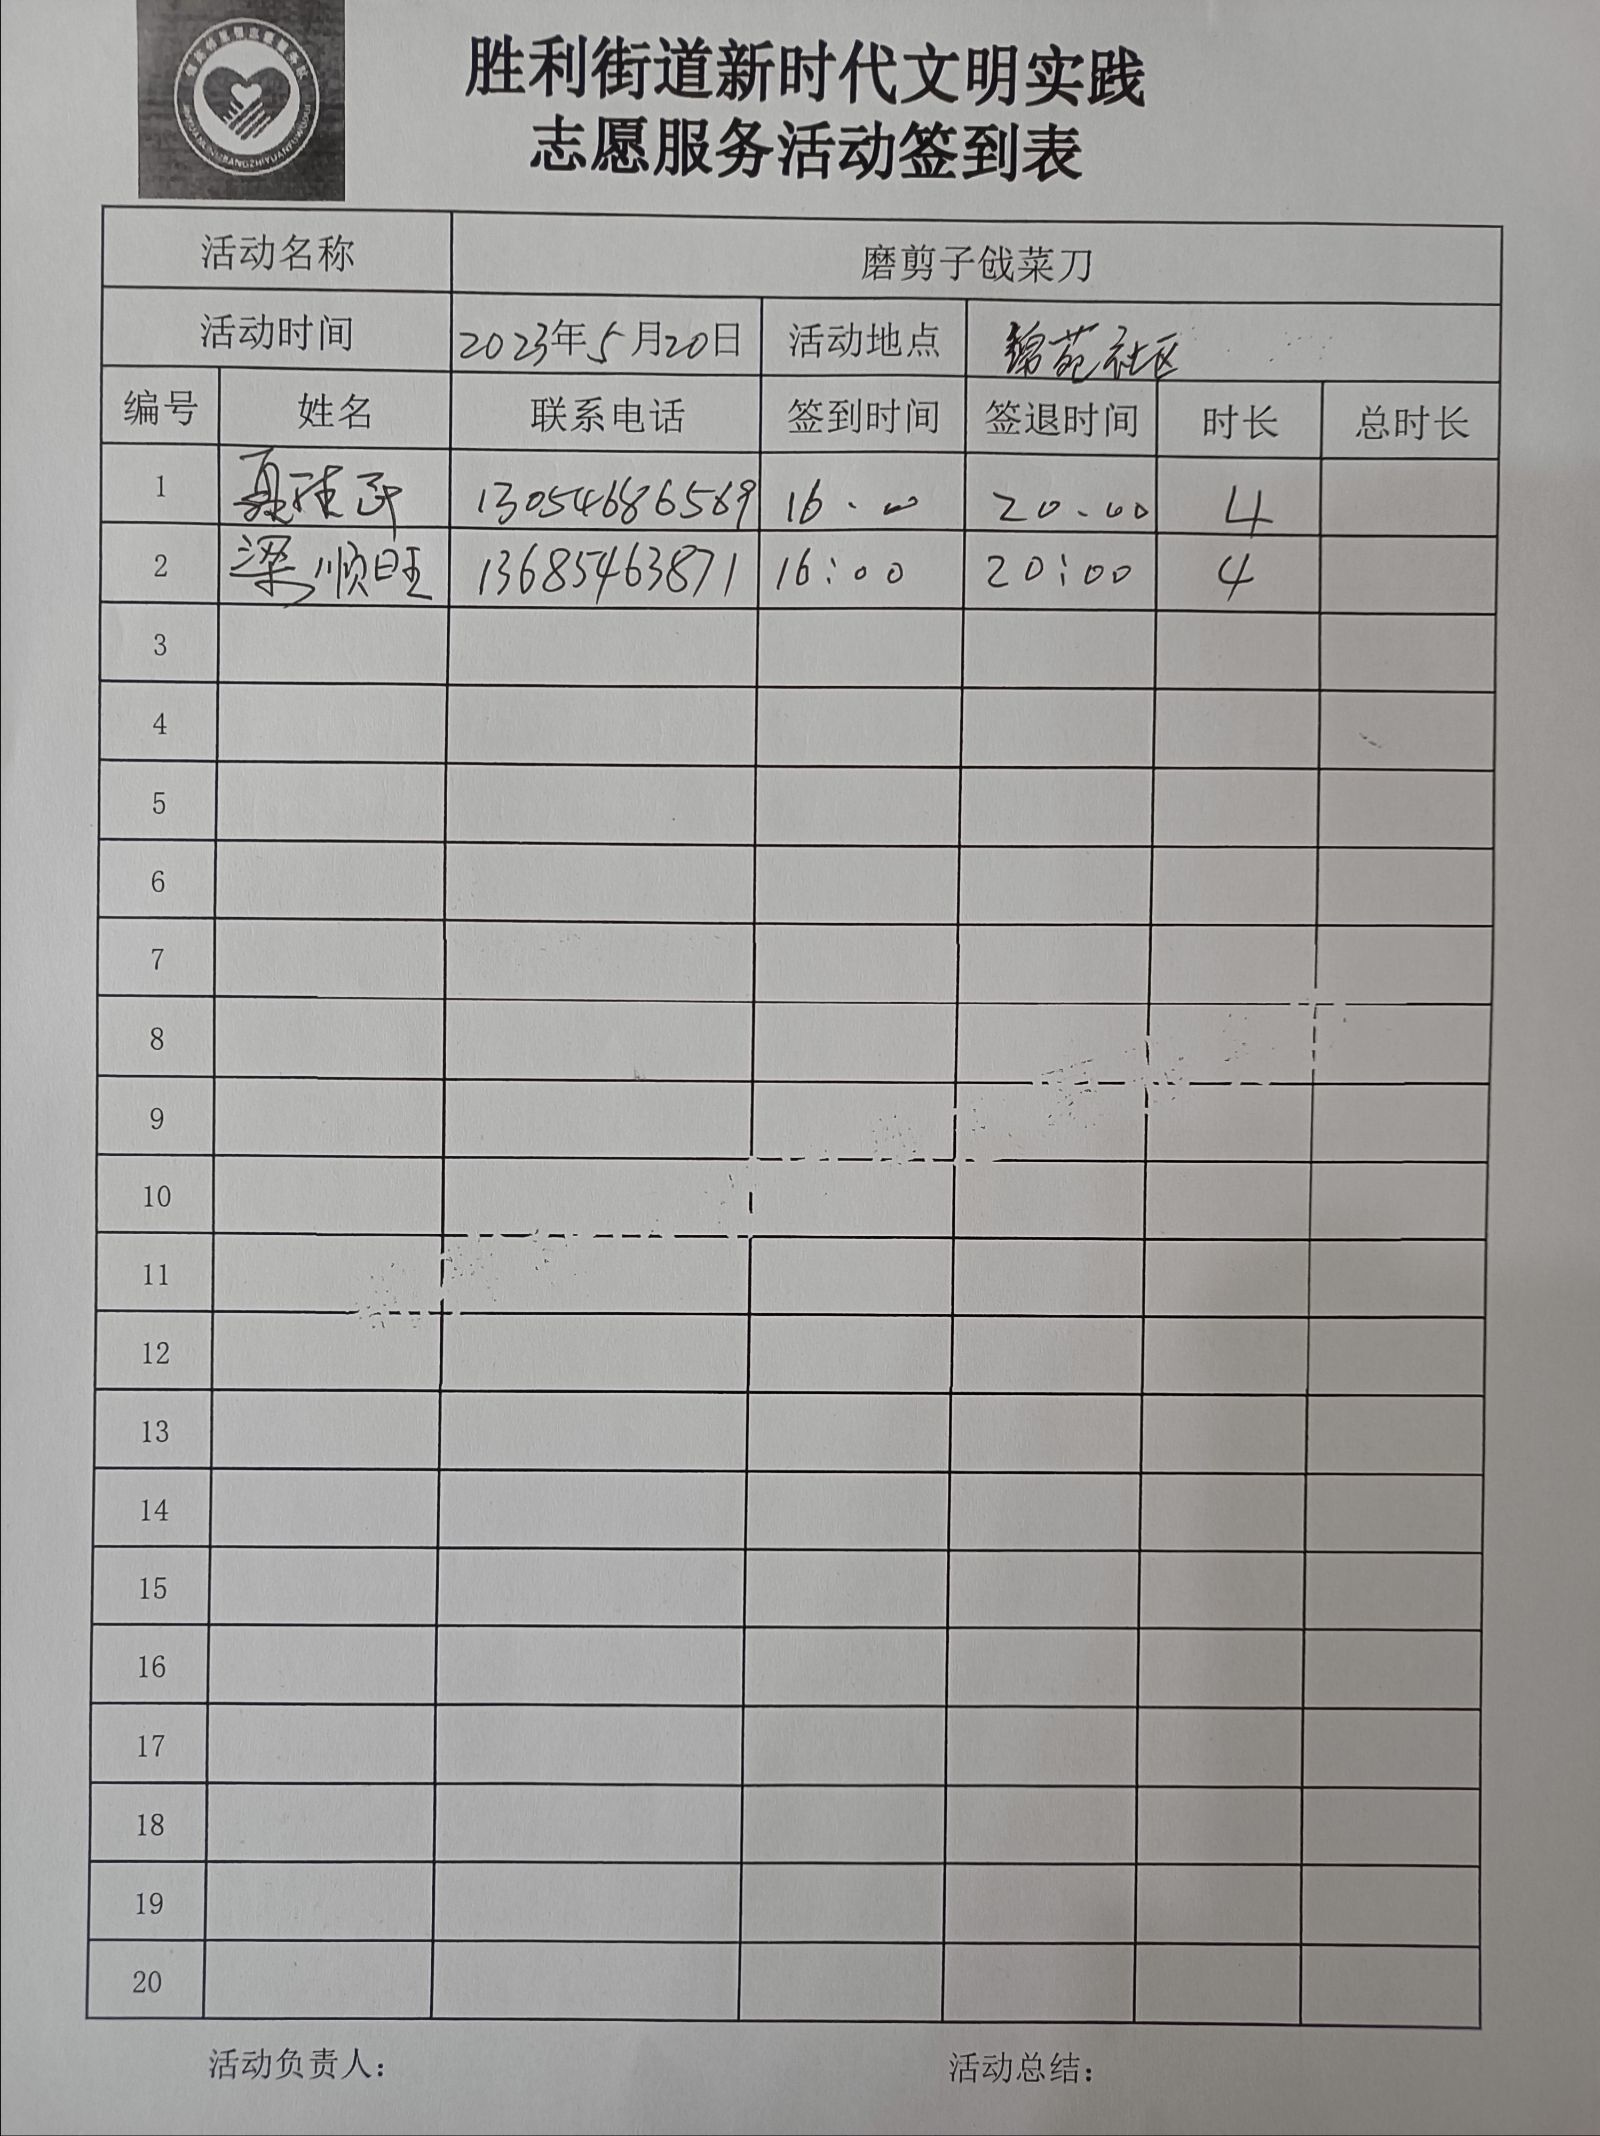 胜利街道新时代文明实践
志愿服务活动签到表
活动名称 磨剪子戗菜刀
活动时间 2023年5月20日 活动地点 锦苑社区
编号 姓名 联系电话 签到时间 签退时间 时长 总时长
1 13054686569 16.00 20.00 4
2 梁顺旺 13685463871 16:00 20:00 4
3
4
5
6
7
8
9
10
11
12
13
14
15
16
17
18
19
20
活动负责人: 活动总结: